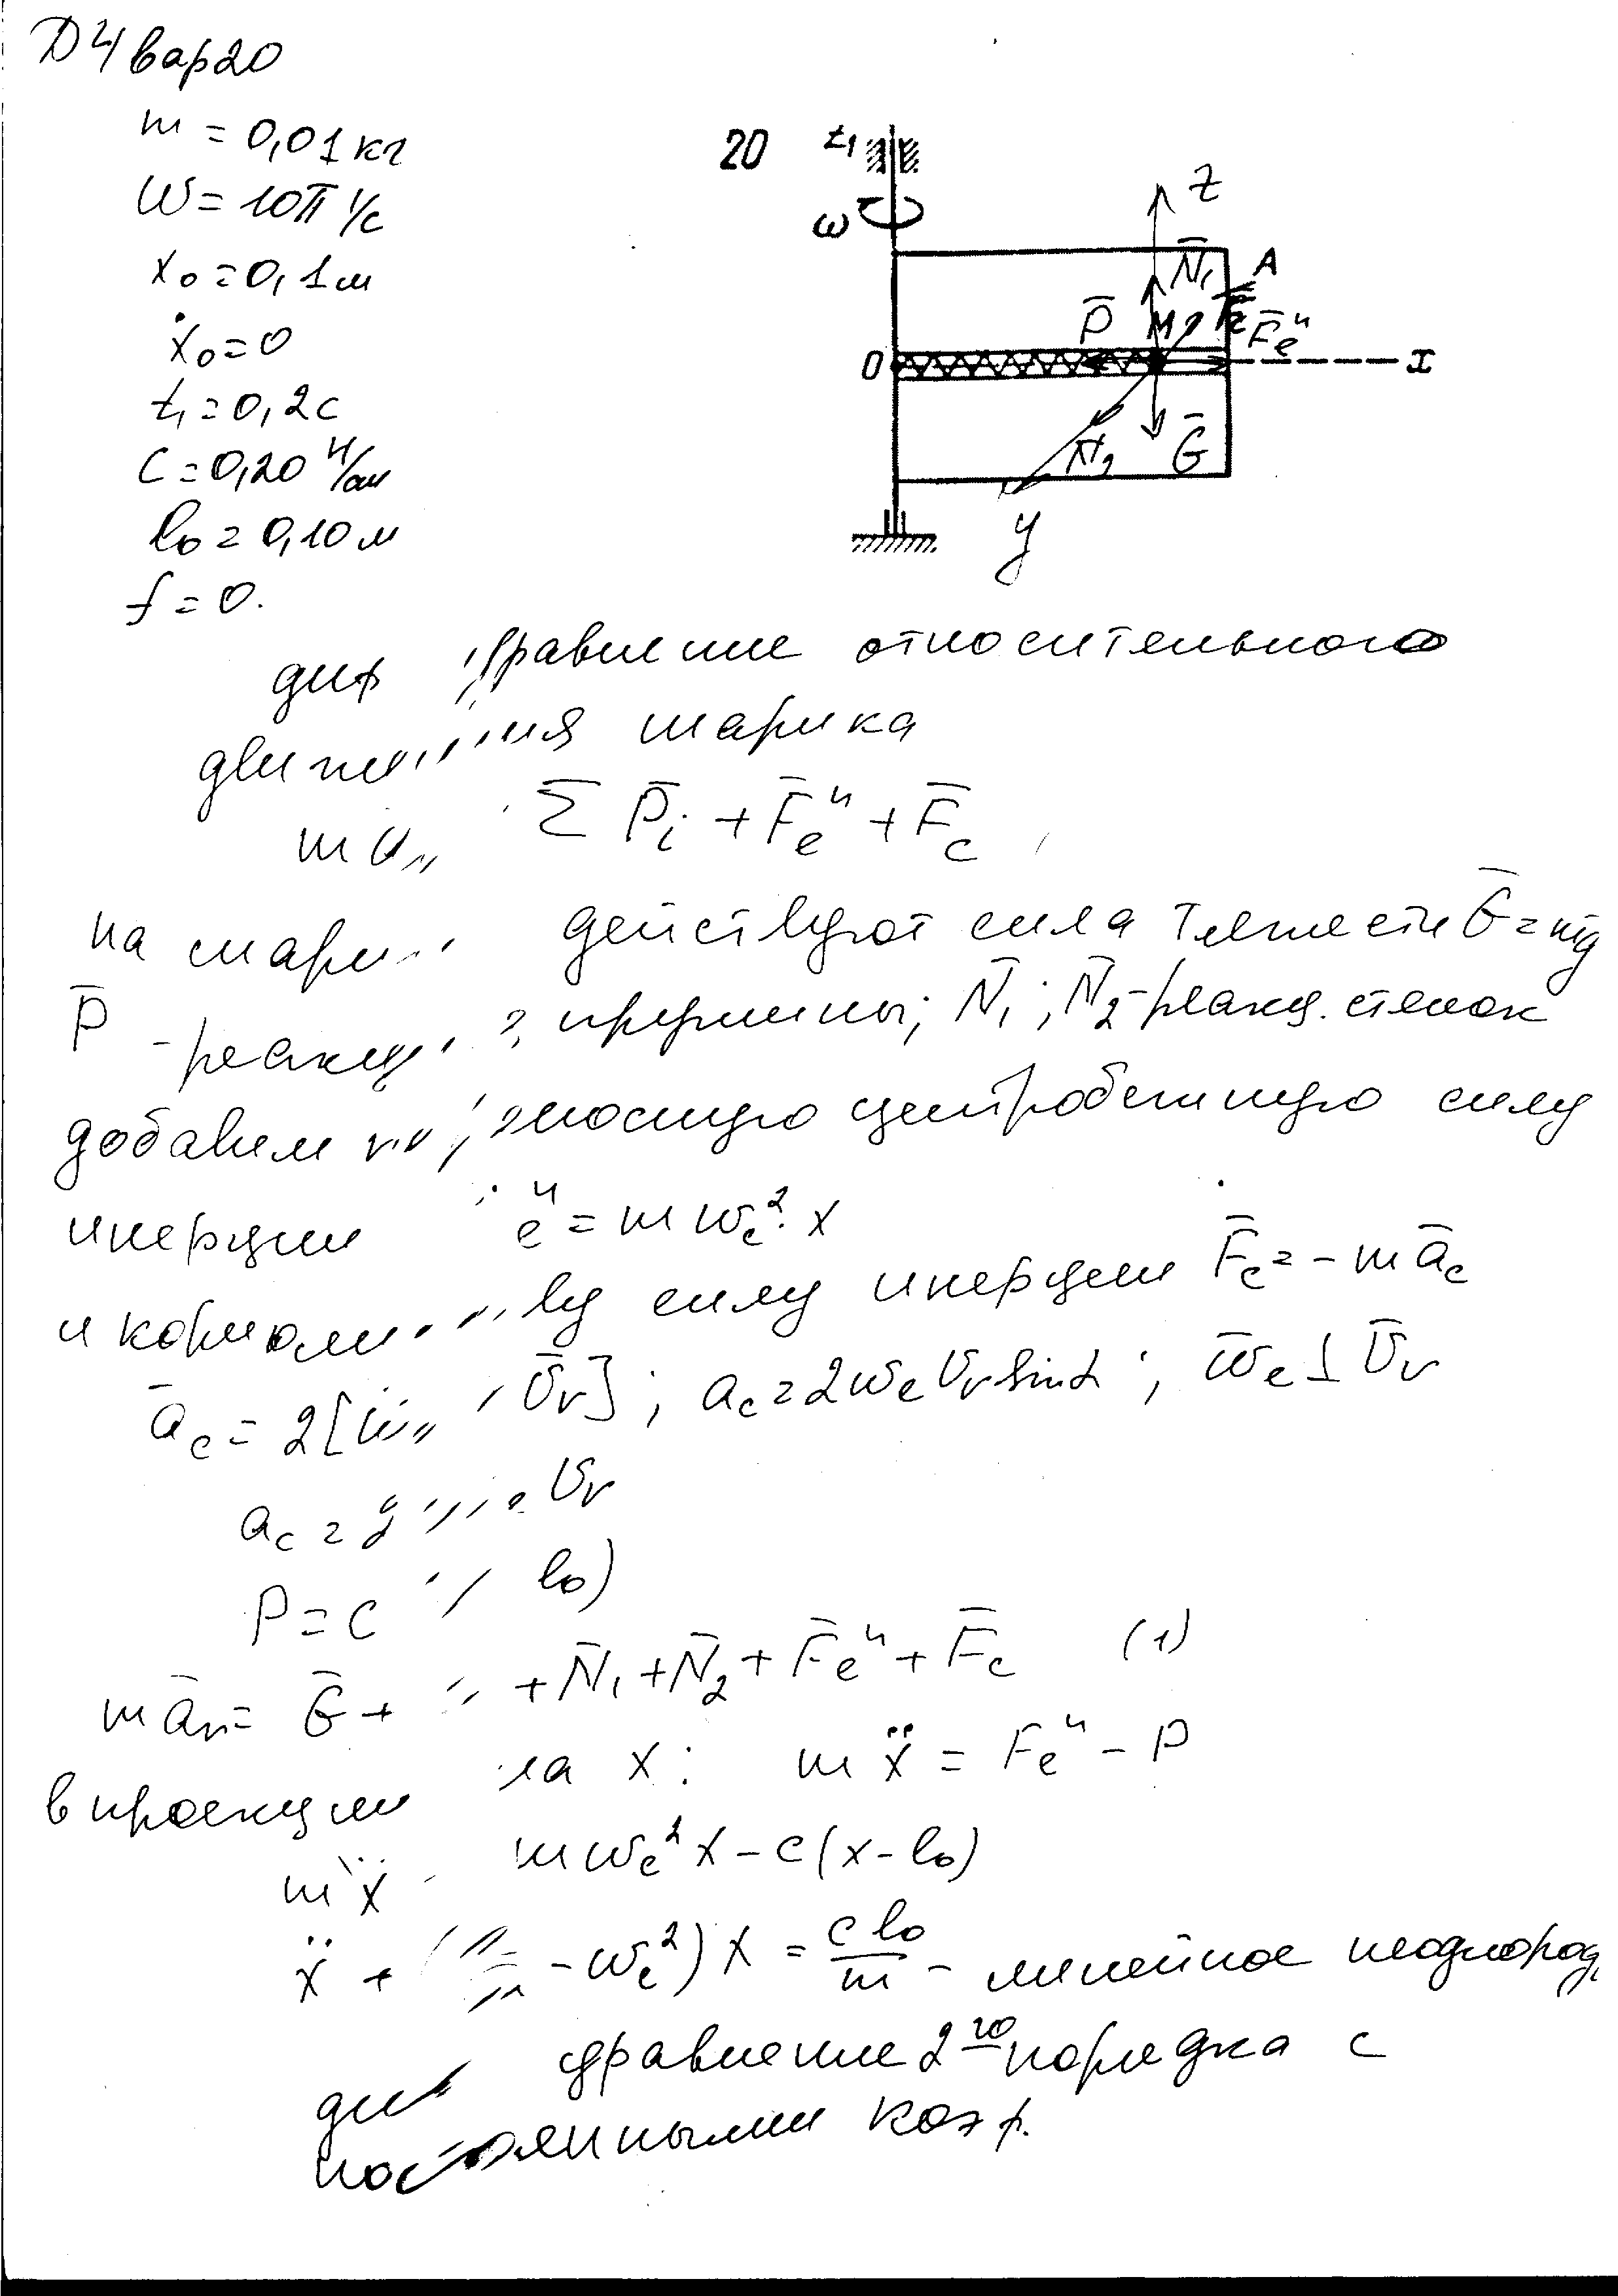 Д4 вар20
m = 0,01 кг
ω = 10π 1/с
x₀ = 0,1 м
ẋ₀ = 0
t₁ = 0,2 с
c = 0,20 Н/см
l₀ = 0,10 м
f = 0.
20
z₁
ω
z
N̄₁
A
P̄
M
F̄ₑᵘ
O
x
N̄₂
Ḡ
y
диф уравнение относительного
шарика
Σ P̄ᵢ + F̄ₑᵘ + F̄c
на действуют сила тяжести Ḡ = mg
P̄ - пружины; N̄₁; N̄₂ - реакц. стенок
добавим центробежную силу
инерции = mωₑ² · x
и силу инерции F̄c = - m āc
āc = 2[ V̄r]; ac = 2ωₑVr sinα; ω̄ₑ ⊥ V̄r
ac = 2 Vr
P = c l₀)
m ār = Ḡ + + N̄₁ + N̄₂ + F̄ₑᵘ + F̄c (1)
в проекции на x: mẍ = Fₑᵘ - P
mẍ mωₑ²x - c(x - l₀)
ẍ + ( - ωₑ²) x = c l₀/m - линейное неоднород.
уравнение 2го порядка с
постоянными коэф.